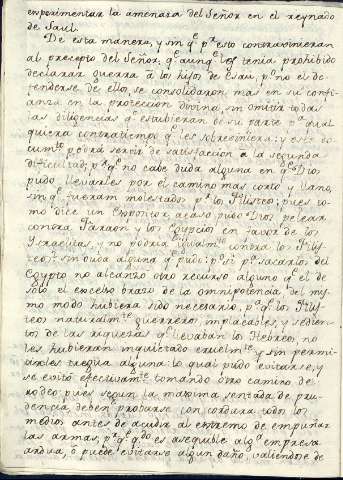 experimentar la amenaza del Señor en el reynado
de Saul.
De esta manera, y sin q.e p.r esto contravinieran
al precepto del Señor: q.e aunq.e les tenia prohibido
declarar guerra à los hijos de Esau, p.o no el de-
fenderse de ellos, se consolidaron mas en su confi-
anza en la proteccion divina, sin omitir todas
las diligencias q.e estubieran de su parte p.a qual
quiera contratiempo q.e les sobreviniera: y este do-
cum.to podrá servir de satisfaccion a la segunda
dificultad; p.r q.e no cabe duda alguna en q.e Dios
pudo llevarles por el camino mas corto y llano,
sin q.e fueran molestados p.r los Filisteos; pues co-
mo dice un Expositor, acaso pudo Dios pelear
contra Faraon y los Egypcios en favor de los
Israelitas, y no podria igualm.te contra los Filis-
teos? sin duda alguna q.e pudo: p.o si p.a sacarlos del
Egypto no alcanzó otro recurso alguno q.e el de
solo el excelso brazo de la omnipotencia del mis-
mo modo hubiera sido necesario, p.r q.e los Filis-
teos naturalm.te guerreros, implacables, y sedien-
tos de las riquezas q.e llevaban los Hebreos, no
les hubieran inquietado cruelm.te y sin permi-
tirles tregua alguna lo qual pudo evitarse, y
se evitó efectivam.te tomando otro camino de
rodeo; pues segun la maxima sentada de pru-
dencia deben probarse con cordura todos los
medios antes de acudir al extremo de empuñar
las armas, p.r q.e q.do es asequible alg.a empresa
ardua, ó puede evitarse algun daño, valiendose de